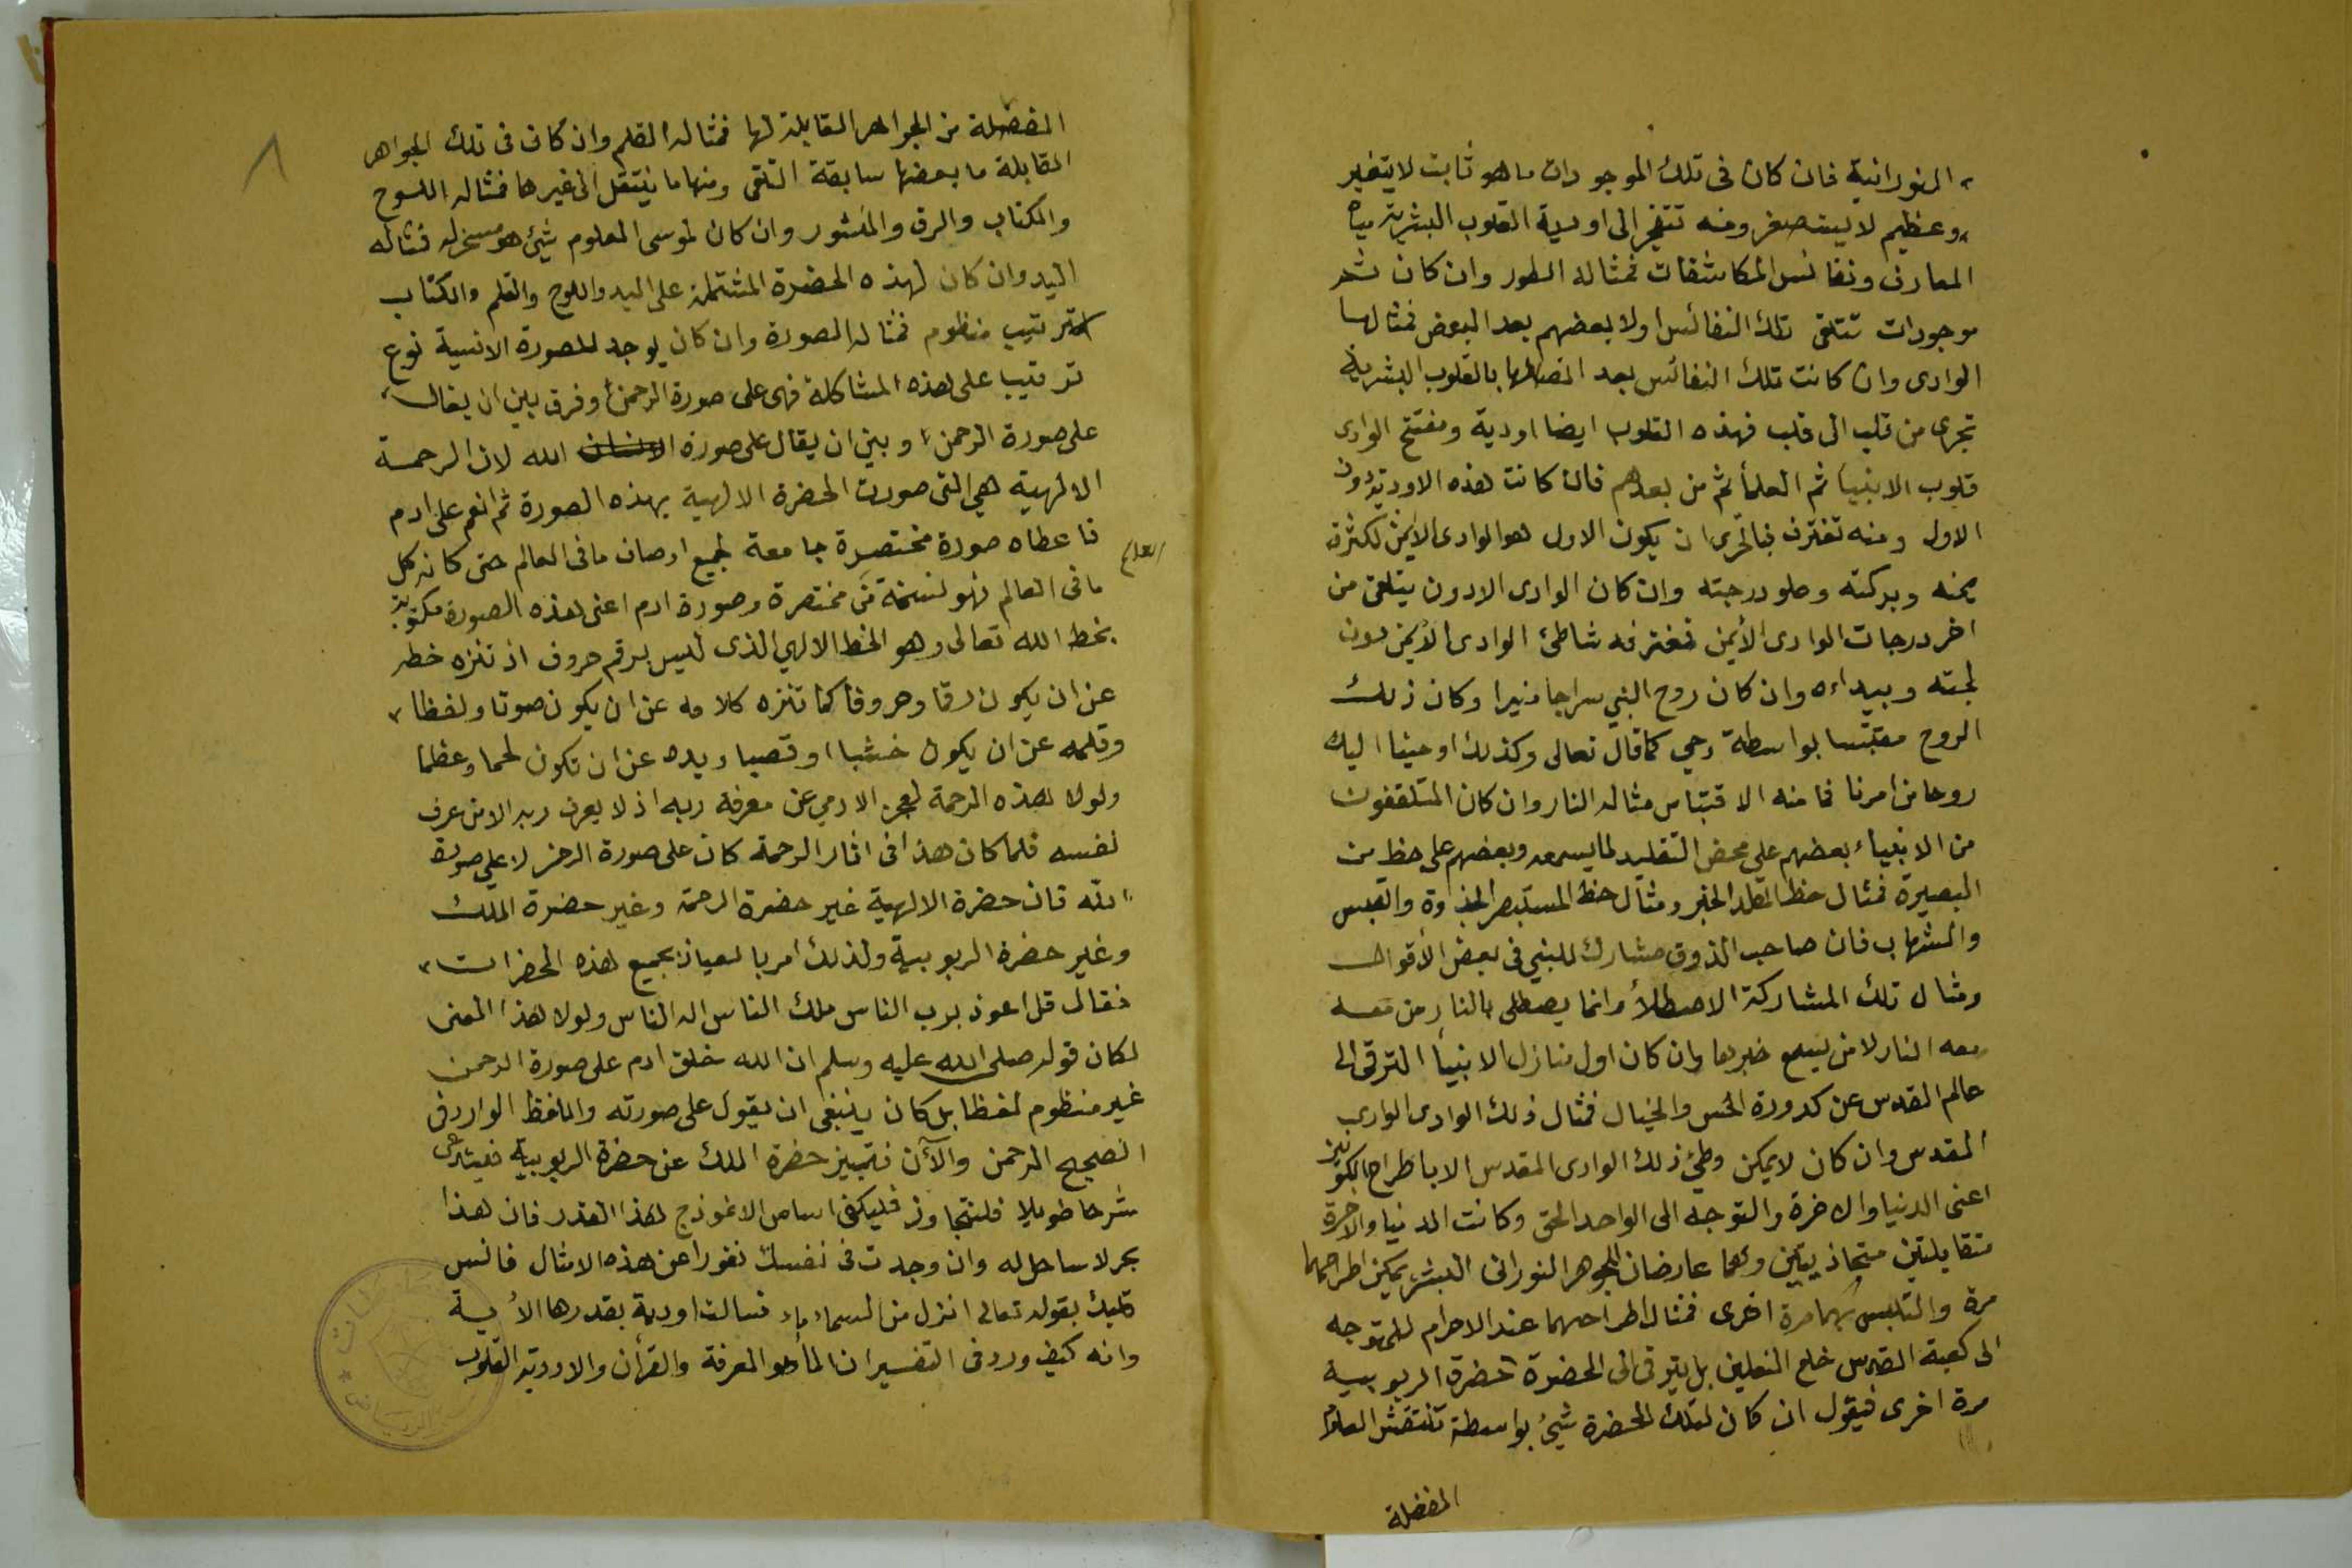 النورانية فان كان فى تلك الموجودات ما هو ثابت لا يتغير
وعظيم لا يستصغر ومنه تتفجر الى اودية القلوب البشرية مياه
المعارف ونفائس المكاشفات فمثاله الطور وان كان ثمر
موجودات تتلقى تلك النفائس اولا بعضهم بعد البعض فمثالها
الوادى وان كانت تلك النفائس بعد اتصالها بالقلوب البشرية
تجرى من قلب الى قلب فهذه القلوب ايضا اودية ومفتتح الوادى
قلوب الانبيا ثم العلمأ ثم من بعدهم فان كانت هذه الاودية دون
الاول ومنه تغترف فبالحرى ان يكون الاول هو الوادى الأيمن لكثرة
يمنه وبركته وعلو درجته وان كان الوادى الادون يتلقى من
اخر درجات الوادى الأيمن فمغترفه شاطئ الوادى الأيمن دون
لجته وبيداءه وان كان روح النبي سراجا منيرا وكان ذلك
الروح مقتبسا بواسطة وحي كما قال تعالى وكذلك اوحينا اليك
روحا من امرنا فما منه الاقتباس مثاله النار وان كان المتلقفون
من الانبياء بعضهم على محض التقليد لما يسمعه وبعضهم على حظ من
البصيرة فمثال حظ المقلد الخبر ومثال حظ المستبصر الجذوة والقبس
والشهاب فان صاحب الذوق مشارك للنبي فى بعض الأقوال
ومثال تلك المشاركة الاصطلأ وانما يصطلى بالنار من معه
معه النار لا من يسمع خبرها وان كان اول منازل الانبيأ الترقى الى
عالم القدس عن كدورة الحس والخيال فمثال ذلك الوادى الوادى
المقدس وان كان لا يمكن وطئ ذلك الوادى المقدس الا باطراح الكونين
اعنى الدنيا والاخرة والتوجه الى الواحد الحق وكانت الدنيا والاخرة
متقابلتين متحاذيتين وهما عارضان للجوهر النورانى البشر يمكن اطراحهما
مرة والتلبس بهما مرة اخرى فمثال اطراحهما عند الاحرام للمتوجه
الى كعبة القدس خلع النعلين بل يترقى الى الحضرة حضرة الربوبية
مرة اخرى فيقول ان كان لتلك الحضرة شئ بواسطة تنتقش العلوم
المفضلة
المفضلة من الجواهر القابلة لها فمثاله القلم وان كان فى تلك الجواهر
القابلة ما بعضها سابقة التلقى ومنها ما ينتقل الى غيرها فمثاله اللوح
والكتاب والرق والمنشور وان كان لموسى المعلوم شئ هو مسخر له فمثاله
اليد وان كان لهذه الحضرة المشتملة على اليد واللوح والقلم والكتاب
ترتيب منظوم فمثاله الصورة وان كان يوجد للصورة الانسية نوع
ترتيب على هذه المشاكلة فهى على صورة الرحمن وفرق بين ان يقال
على صورة الرحمن وبين ان يقال على صورة الانسان الله لان الرحمة
الالهية هي التى صورت الحضرة الالهية بهذه الصورة ثم انعم على ادم
فاعطاه صورة مختصرة جامعة لجميع اوصاف ما فى العالم حتى كانه كل
العلم
ما فى العالم فهو نسخة مختصرة وصورة ادم اعنى هذه الصورة مكتوبة
بخط الله تعالى وهو الخط الالهي الذى ليس برقم حروف اذ تنزه خطه
عن ان يكون رقما وحروفا كما تنزه كلامه عن ان يكون صوتا ولفظا
وقلمه عن ان يكون خشبا او قصبا ويده عن ان تكون لحما وعظما
ولولا هذه الرحمة لعجز الادمي عن معرفة ربه اذ لا يعرف ربه الا من عرف
نفسه فلما كان هذا فى اثار الرحمة كان على صورة الرحمن لا على صورة
الله فان حضرة الالهية غير حضرة الرحمة وغير حضرة الملك
وغير حضرة الربوبية ولذلك امر بالعياذ بجميع هذه الحضرات
فقال قل اعوذ برب الناس ملك الناس اله الناس ولولا هذا المعنى
لكان قوله صلى الله عليه وسلم ان الله خلق ادم على صورة الرحمن
غير منظوم لفظا بل كان ينبغى ان يقول على صورته واللفظ الوارد فى
الصحيح الرحمن والآن فتمييز حضرة الملك عن حضرة الربوبية فيستدعى
شرحا طويلا فلنتجاوز فليكفى اساس الانموذج هذا القدر فان هذا
بحر لا ساحل له وان وجدت فى نفسك نفورا عن هذه الامثال فانس
قلبك بقوله تعالى انزل من السماء ماء فسالت اودية بقدرها الأية
وانه كيف ورد فى التفسير ان المأ هو المعرفة والقرأن والاودية القلوب